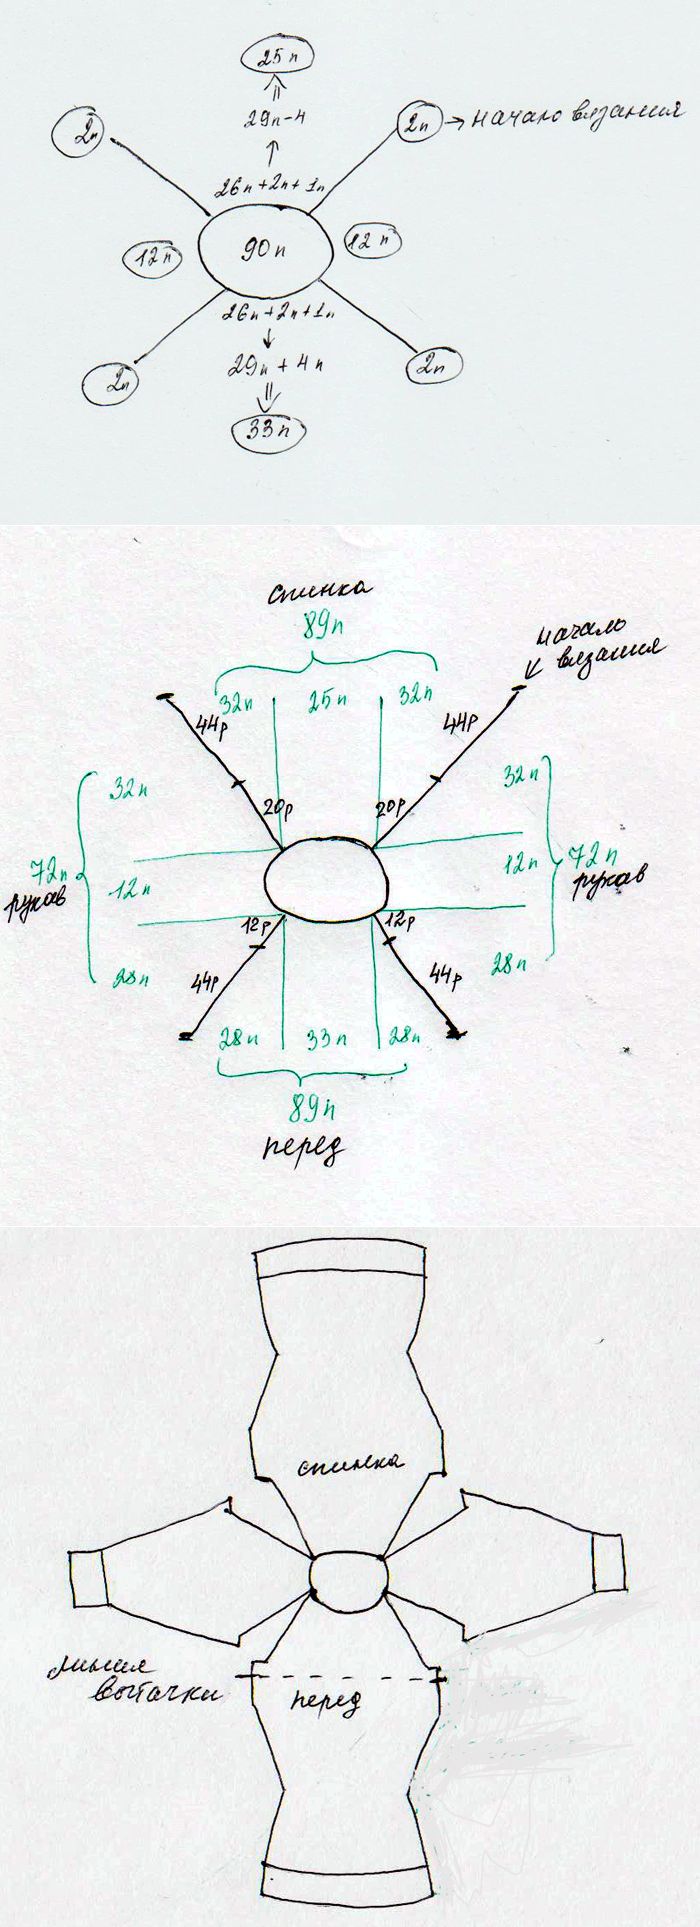 25п
29п-4
2п
2п → начало вязания
26п+2п+1п
12п
90п
12п
26п+2п+1п
29п+4п
2п
2п
33п
спинка
89п
начало
вязания
32п
25п
32п
44р
44р
32п
32п
20р
20р
72п
рукав
12п
12п
72п
рукав
12р
12р
28п
44р
44р
28п
28п
33п
28п
89п
перед
спинка
линия
выточки
перед